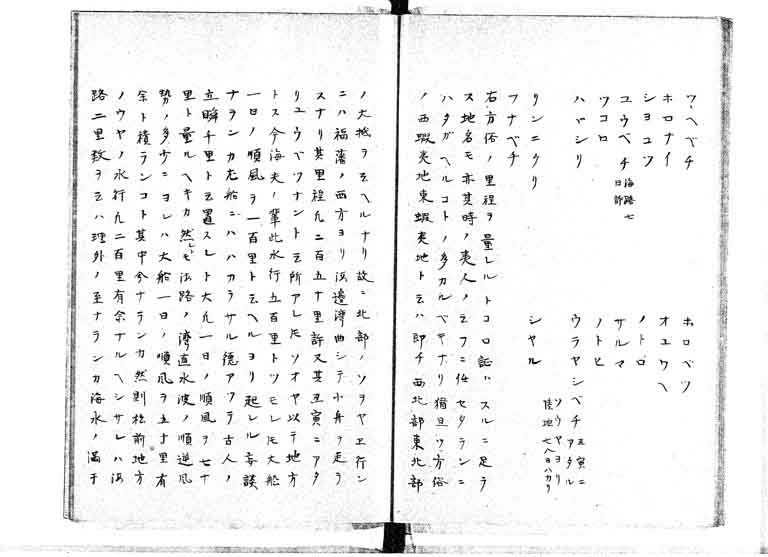 ワヘベチ
ホロナイ
シヨコツ
ユウベチ 海路七日許
ツコロ
ハヾシリ
リンニクリ
フナベチ
ホロベツ
オユワヘ
ノトロ
サルマ
ノトヒ
ウラヤシベチ 丑寅ニアタル ソウヤヨリ陸地七八日ハカリ
シヤル
右方俗ノ里程ヲ量レルトコロ証トスルニ足ラ
ス地名モ亦其時ノ夷人ノ云フニ任セタランニ
ハタガヘルコト多カルベキナリ猶且ツ方俗
ノ西蝦夷地東蝦夷地ト云ハ即チ西北部東北部
ノ大抵ヲ云ヘルナリ故ニ北部ノソヲヤヱ行ン
ニハ福藩ノ西方ヨリ海邊湾曲シテ小舟ヲ走ラ
スナリ其里程凡二百五十里許又其丑寅ニアタ
リユウベツナント云所アレ𪜈ソオヤ以テ地方
トス今海夫ノ輩此水行五百里トツモレ𪜈大船
一日ノ順風ヲ一百里ト云ヘルヨリ起レル妄談
ナランカ尤船ニハハカラサル徳アフラ古人ノ
立瞬千里ト云置スレト大凡一日ノ順風ヲ七十
里ト量ルヘキカ然レトモ海路ノ湾直水波ノ順逆風
勢ノ多少ニヨレハ大船一日ノ順風ヲ五十里有
余ト積ランコト其中今ナランカ然則松前地方
ノウヤノ水行凡二百里有余ナルヘシサレハ海
路二里数ヲ云ハ理外ノ至ナランカ海水ノ満干